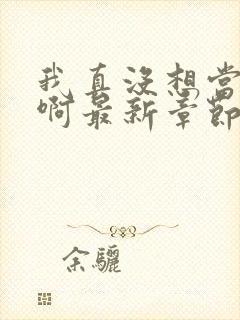 我真没想当
啊最新章节
余骊